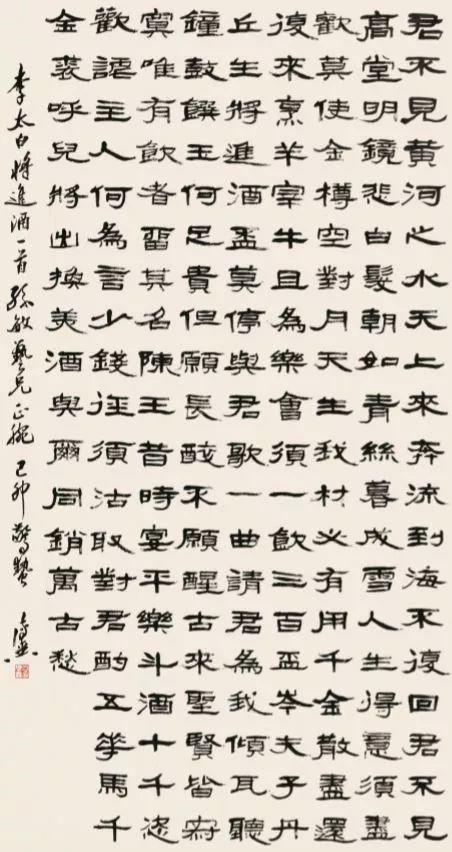 君不見黃河之水天上來奔流到海不復回君不見
高堂明鏡悲白髮朝如青絲暮成雪人生得意須盡
歡莫使金樽空對月天生我材必有用千金散盡還
復來烹羊宰牛且為樂會須一飲三百盃岑夫子丹
丘生將進酒盃莫停與君歌一曲請君為我傾耳聽
鐘鼓饌玉何足貴但願長醉不願醒古來聖賢皆寂
寞唯有飲者留其名陳王昔時宴平樂斗酒十千恣
歡謔主人何為言少錢徑須沽取對君酌五華馬千
金裘呼兒將出換美酒與爾同銷萬古愁
李太白將進酒一首 孫敏藝兄正腕 己卯驚蟄